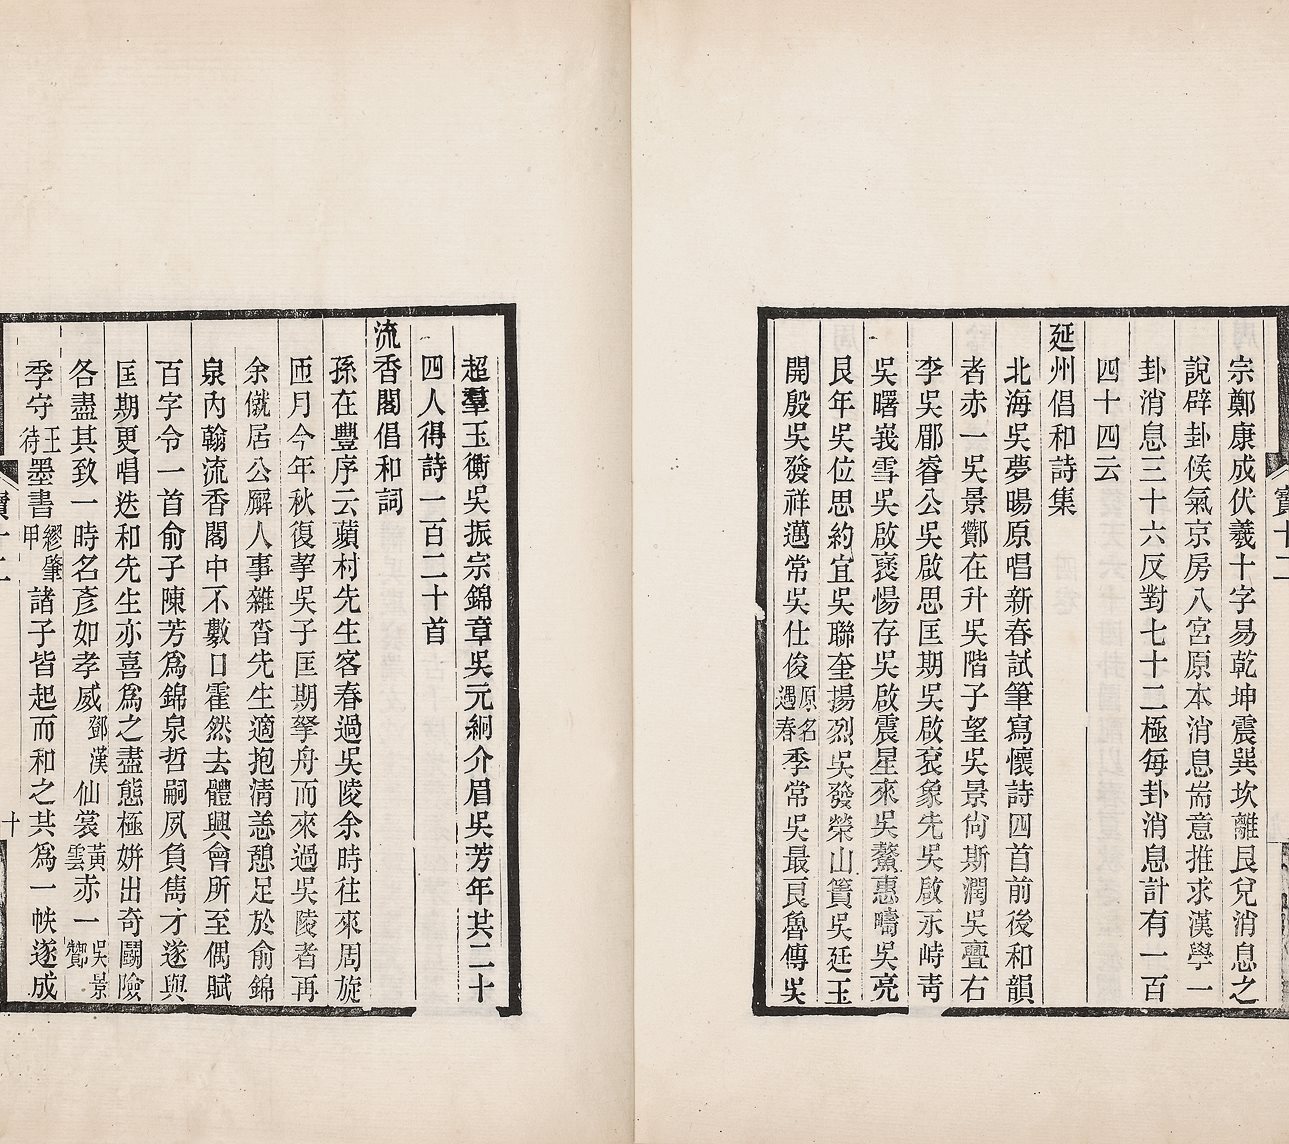 宗鄭康成伏羲十字易乾坤震巽坎離艮兌消息之
說辟卦候氣京房八宮原本消息耑意推求漢學一
卦消息三十六反對七十二極每卦消息計有一百
四十四云
延州倡和詩集
北海吳夢暘原唱新春試筆寫懷詩四首前後和韻
者赤一吳景酇在升吳階子望吳景尙斯潤吳亹右
李吳郿睿公吳啟思匡期吳啟袞象先吳啟永峙靑
吳曙峩雪吳啟褒惕存吳啟震星來吳鰲惠疇吳亮
艮年吳位思約宜吳聯奎揚烈吳發榮山簣吳廷玉
開殷吳發祥邁常吳仕俊原名遇春季常吳最艮魯傳吳
超羣玉衡吳振宗錦章吳元絅介眉吳芳年共二十
四人得詩一百二十首
流香閣倡和詞
孫在豐序云蘋村先生客春過吳陵余時往來周旋
匝月今年秋復挐吳子匡期拏舟而來過吳陵者再
余僦居公廨人事雜沓先生適抱淸恙憩足於俞錦
泉內翰流香閣中不數日霍然去體興會所至偶賦
百字令一首俞子陳芳爲錦泉哲嗣夙負雋才遂與
匡期更唱迭和先生亦喜爲之盡態極姸出奇鬭險
各盡其致一時名彥如孝威鄧漢仙裳黃雲赤一吳景酇
季守王待墨書繆肇甲諸子皆起而和之共爲一帙遂成
寶十二
十